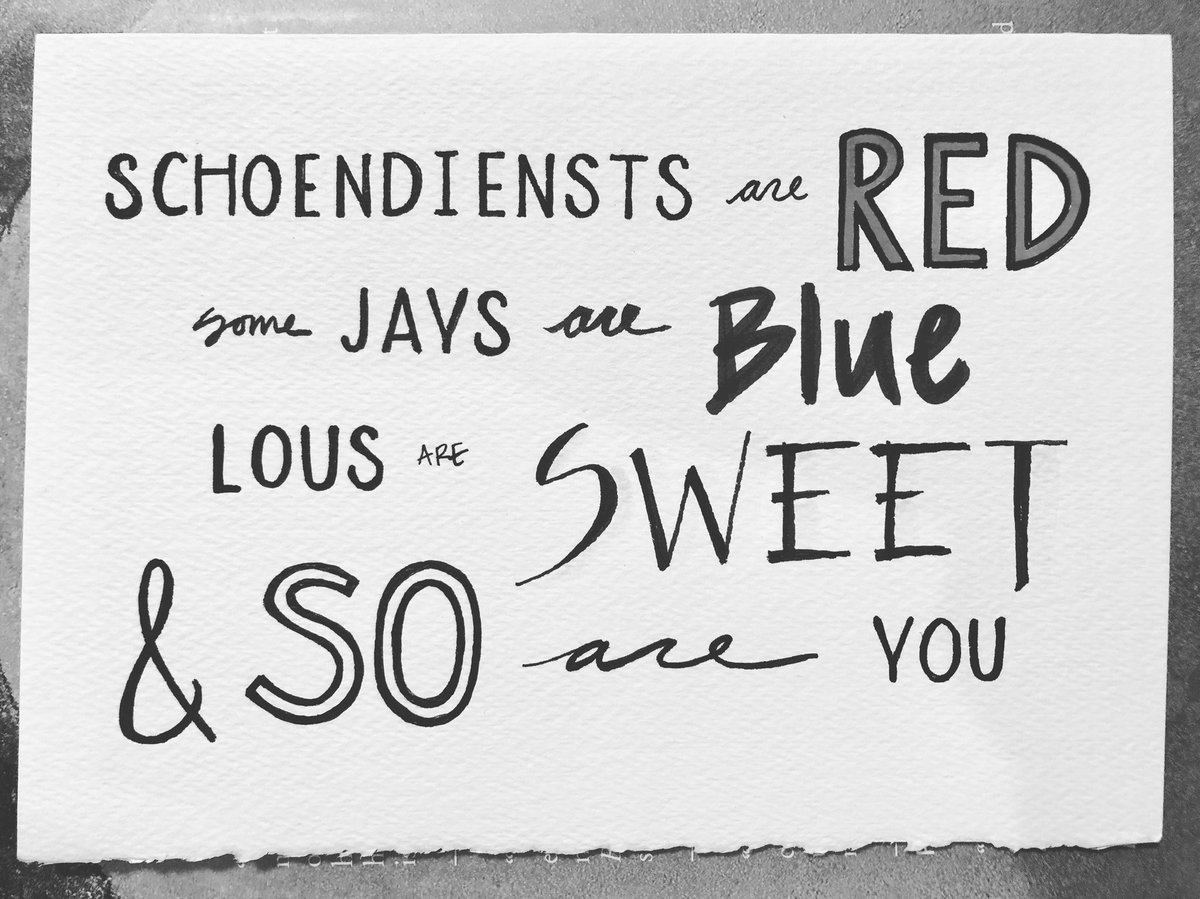 SCHOENDIENSTS are RED
some JAYS are Blue
LOUS ARE SWEET
& SO are YOU